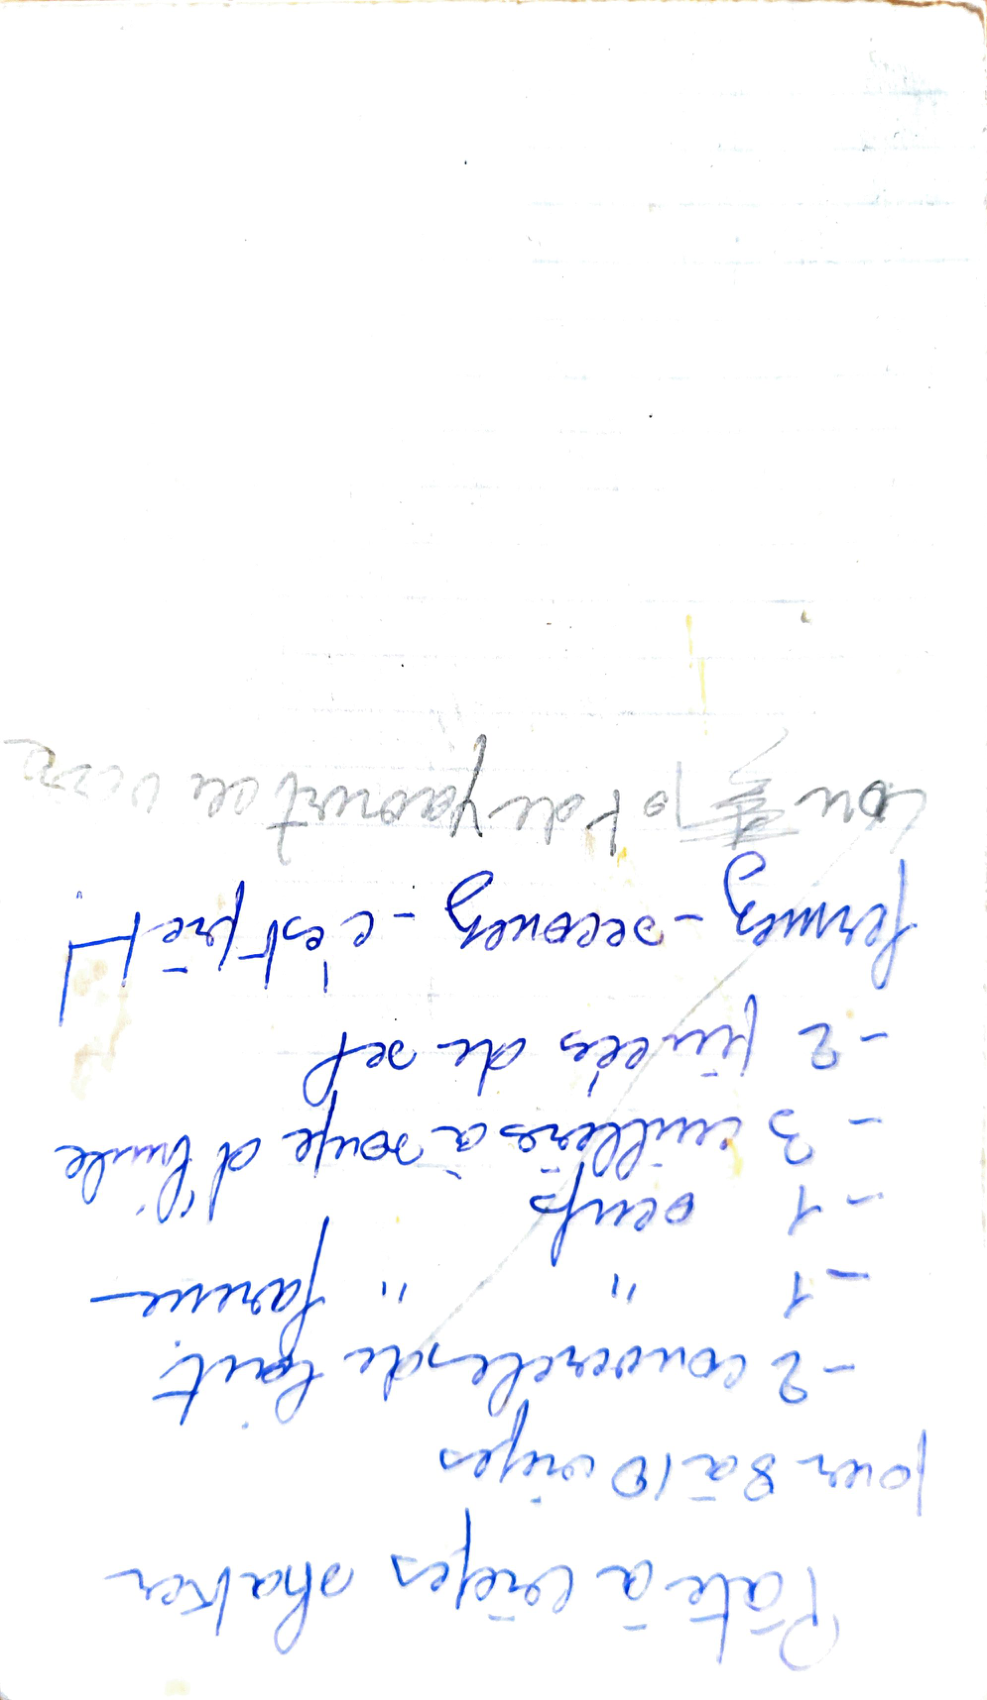 Pâte à crêpes shaker
pour 8 à 10 crêpes
- 2 couvercles de lait.
- 1 " " farine
- 1 oeufs
- 3 cuillères à soupe d'huile
- 2 pincées de sel
fermez - secouez - c'est prêt!
ou pot de yaourt en verre